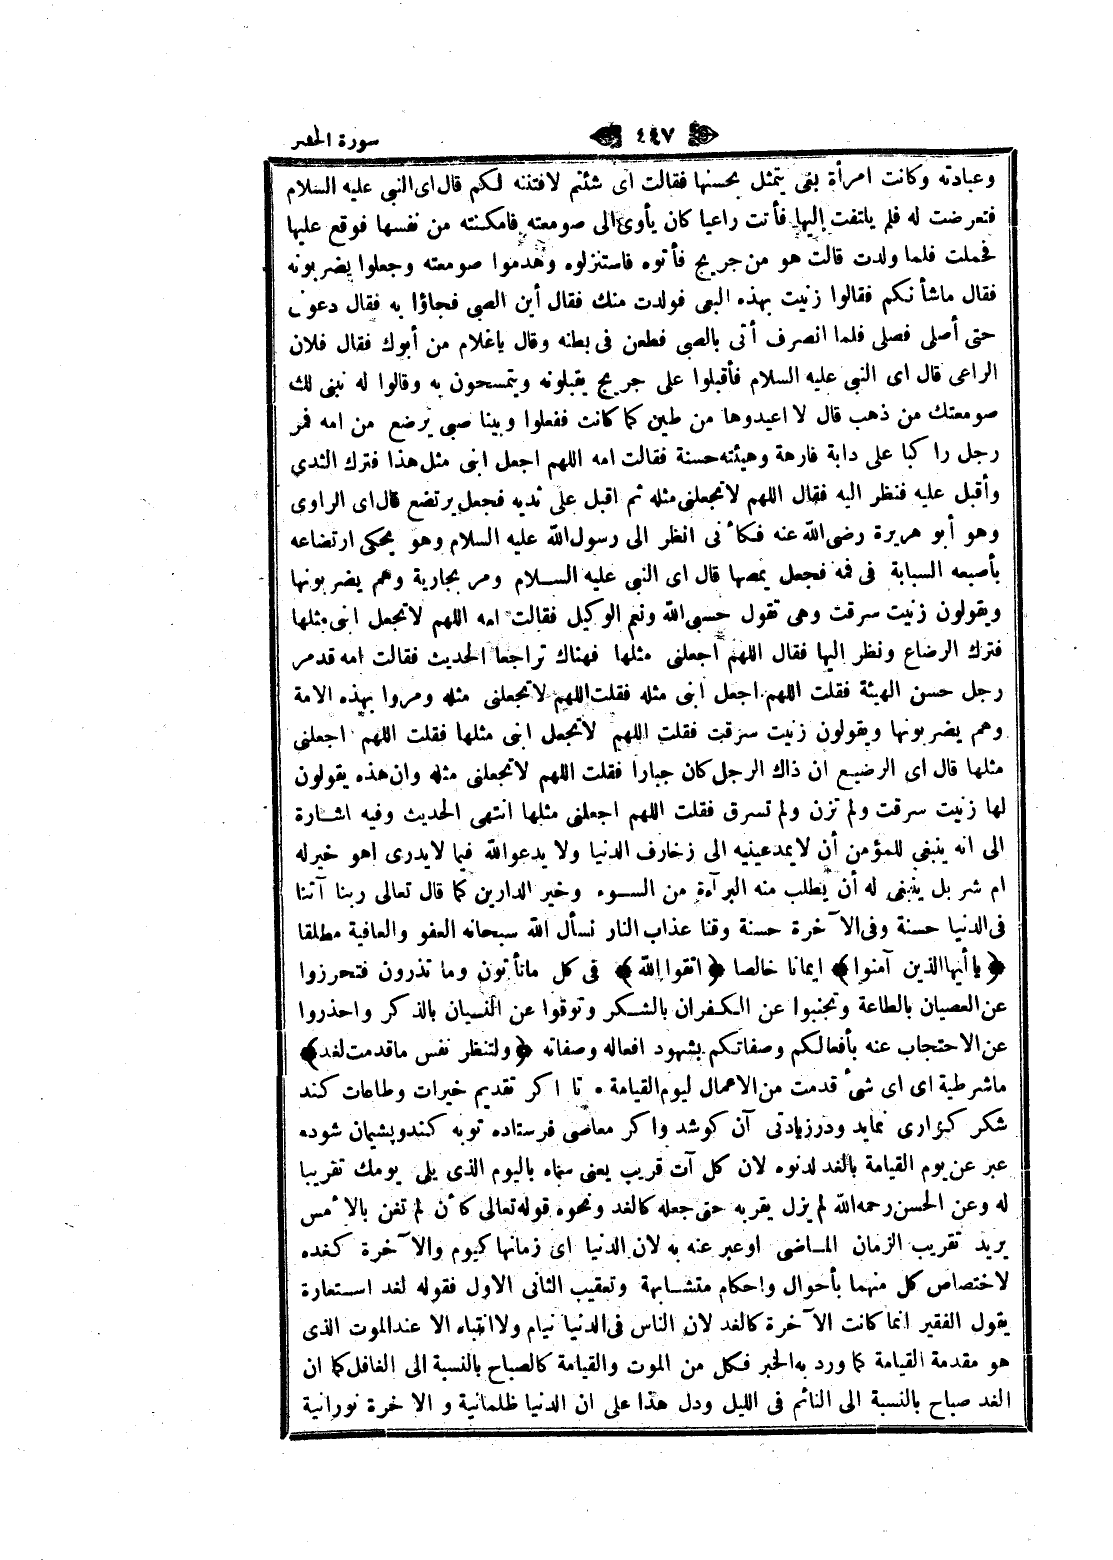 ٤٤٧ سورة الحشر
وعبادته وكانت امرأة بغى يتمثل بحسنها فقالت اى شئتم لافتننه لكم قال اى النبى عليه السلام
فتعرضت له فلم يلتفت إليها فأتت راعيا كان يأوى الى صومعته فامكنته من نفسها فوقع عليها
فحملت فلما ولدت قالت هو من جريج فأتوه فاستنزلوه وهدموا صومعته وجعلوا يضربونه
فقال ماشأنكم فقالوا زنيت بهذه البغى فولدت منك فقال أين الصبى فجاؤا به فقال دعونى
حتى أصلى فصلى فلما انصرف أتى بالصبى فطعن فى بطنه وقال ياغلام من أبوك فقال فلان
الراعى قال اى النبى عليه السلام فأقبلوا على جريج يقبلونه ويتمسحون به وقالوا له نبنى لك
صومعتك من ذهب قال لا اعيدوها من طين كما كانت ففعلوا وبينا صبى يرضع من امه فمر
رجل راكبا على دابة فارهة وهيئته حسنة فقالت امه اللهم اجعل ابنى مثل هذا فترك الثدي
وأقبل عليه فنظر اليه فقال اللهم لاتجعلنى مثله ثم اقبل على ثديه فجعل يرتضع قال اى الراوى
وهو أبو هريرة رضى الله عنه فكأنى انظر الى رسول الله عليه السلام وهو يحكى ارتضاعه
بأصبعه السبابة فى فمه فجعل يمصها قال اى النبى عليه السلام ومر بجارية وهم يضربونها
ويقولون زنيت سرقت وهى تقول حسبى الله ونعم الوكيل فقالت امه اللهم لاتجعل ابنى مثلها
فترك الرضاع ونظر اليها فقال اللهم اجعلنى مثلها فهناك تراجعا الحديث فقالت امه قدمر
رجل حسن الهيئة فقلت اللهم اجعل ابنى مثله فقلت اللهم لاتجعلنى مثله ومروا بهذه الامة
وهم يضربونها ويقولون زنيت سرقت فقلت اللهم لاتجعل ابنى مثلها فقلت اللهم اجعلنى
مثلها قال اى الرضيع ان ذاك الرجل كان جبارا فقلت اللهم لاتجعلنى مثله وان هذه يقولون
لها زنيت سرقت ولم تزن ولم تسرق فقلت اللهم اجعلنى مثلها انتهى الحديث وفيه اشارة
الى انه ينبغى للمؤمن أن لايمدعينيه الى زخارف الدنيا ولا يدعوالله فيما لايدرى اهو خيرله
ام شر بل ينبغى له أن يطلب منه البرآءة من السوء وخير الدارين كما قال تعالى ربنا آتنا
فى الدنيا حسنة وفى الآخرة حسنة وقنا عذاب النار نسأل الله سبحانه العفو والعافية مطلقا
﴿ ياأيها الذين آمنوا ﴾ ايمانا خالصا ﴿ اتقوا الله ﴾ فى كل ماتأتون وما تذرون فتحرزوا
عن العصيان بالطاعة وتجنبوا عن الكفران بالشكر وتوقوا عن النسيان بالذكر واحذروا
عن الاحتجاب عنه بأفعالكم وصفاتكم بشهود افعاله وصفاته ﴿ ولتنظر نفس ماقدمت لغد ﴾
ماشرطية اى اى شىء قدمت من الاعمال ليوم القيامة ٠ تا اكر تقديم خيرات وطاعات كند
شكر كزارى نمايد ودرزيادتى آن كوشد واكر معاصى فرستاده توبه كند وپشيمان شوده
عبر عن يوم القيامة بالغد لدنوه لان كل آت قريب يعنى سماه باليوم الذى يلى يومك تقريبا
له وعن الحسن رحمه الله لم يزل يقربه حتى جعله كالغد ونحوه قوله تعالى كأن لم تغن بالأمس
يريد تقريب الزمان الماضى اوعبر عنه به لان الدنيا اى زمانها كيوم والآخرة كغده
لاختصاص كل منهما بأحوال واحكام متشابهة وتعقيب الثانى الاول فقوله لغد استعارة
يقول الفقير انما كانت الآخرة كالغد لان الناس فى الدنيا نيام ولاانتباه الا عندالموت الذى
هو مقدمة القيامة كما ورد به الخبر فكل من الموت والقيامة كالصباح بالنسبة الى الغافل كما ان
الغد صباح بالنسبة الى النائم فى الليل ودل هذا على ان الدنيا ظلمانية و الآخرة نورانية